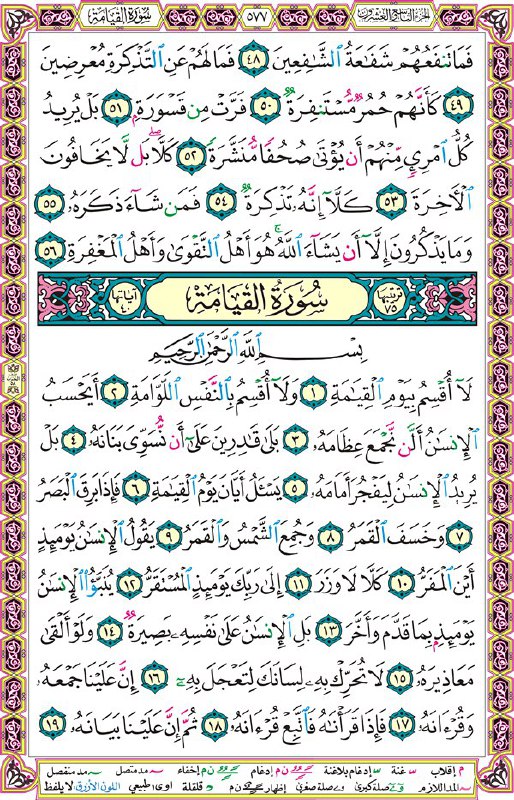 سُورَةُ القِيَامَةِ ٥٧٧ الجُزءُ التَّاسِعُ وَالعِشرُونَ
فَمَا تَنفَعُهُمْ شَفَٰعَةُ ٱلشَّٰفِعِينَ ٤٨ فَمَا لَهُمْ عَنِ ٱلتَّذْكِرَةِ مُعْرِضِينَ
٤٩ كَأَنَّهُمْ حُمُرٌ مُّسْتَنفِرَةٌ ٥٠ فَرَّتْ مِن قَسْوَرَةٍۭ ٥١ بَلْ يُرِيدُ
كُلُّ ٱمْرِئٍ مِّنْهُمْ أَن يُؤْتَىٰ صُحُفًا مُّنَشَّرَةً ٥٢ كَلَّا ۖ بَل لَّا يَخَافُونَ
ٱلْأَخِرَةَ ٥٣ كَلَّآ إِنَّهُۥ تَذْكِرَةٌ ٥٤ فَمَن شَآءَ ذَكَرَهُۥ ٥٥
وَمَا يَذْكُرُونَ إِلَّآ أَن يَشَآءَ ٱللَّهُ ۚ هُوَ أَهْلُ ٱلتَّقْوَىٰ وَأَهْلُ ٱلْمَغْفِرَةِ ٥٦
ترتيبها ٧٥ سُورَةُ القِيَامَةِ آياتها ٤٠
بِسْمِ ٱللَّهِ ٱلرَّحْمَٰنِ ٱلرَّحِيمِ
لَآ أُقْسِمُ بِيَوْمِ ٱلْقِيَٰمَةِ ١ وَلَآ أُقْسِمُ بِٱلنَّفْسِ ٱللَّوَّامَةِ ٢ أَيَحْسَبُ
ٱلْإِنسَٰنُ أَلَّن نَّجْمَعَ عِظَامَهُۥ ٣ بَلَىٰ قَٰدِرِينَ عَلَىٰٓ أَن نُّسَوِّىَ بَنَانَهُۥ ٤ بَلْ
يُرِيدُ ٱلْإِنسَٰنُ لِيَفْجُرَ أَمَامَهُۥ ٥ يَسْـَٔلُ أَيَّانَ يَوْمُ ٱلْقِيَٰمَةِ ٦ فَإِذَا بَرِقَ ٱلْبَصَرُ
٧ وَخَسَفَ ٱلْقَمَرُ ٨ وَجُمِعَ ٱلشَّمْسُ وَٱلْقَمَرُ ٩ يَقُولُ ٱلْإِنسَٰنُ يَوْمَئِذٍ
أَيْنَ ٱلْمَفَرُّ ١٠ كَلَّا لَا وَزَرَ ١١ إِلَىٰ رَبِّكَ يَوْمَئِذٍ ٱلْمُسْتَقَرُّ ١٢ يُنَبَّؤُا۟ ٱلْإِنسَٰنُ
يَوْمَئِذٍۭ بِمَا قَدَّمَ وَأَخَّرَ ١٣ بَلِ ٱلْإِنسَٰنُ عَلَىٰ نَفْسِهِۦ بَصِيرَةٌ ١٤ وَلَوْ أَلْقَىٰ
مَعَاذِيرَهُۥ ١٥ لَا تُحَرِّكْ بِهِۦ لِسَانَكَ لِتَعْجَلَ بِهِۦٓ ١٦ إِنَّ عَلَيْنَا جَمْعَهُۥ
وَقُرْءَانَهُۥ ١٧ فَإِذَا قَرَأْنَٰهُ فَٱتَّبِعْ قُرْءَانَهُۥ ١٨ ثُمَّ إِنَّ عَلَيْنَا بَيَانَهُۥ ١٩
م إقلاب غنة إدغام بلاغنة ن م إدغام ن م إخفاء مد متصل مد منفصل
المد اللازم صلة كبرى صلة صغرى إظهار ن م قلقلة اوى طبيعي اللون الأزرق لا يلفظ